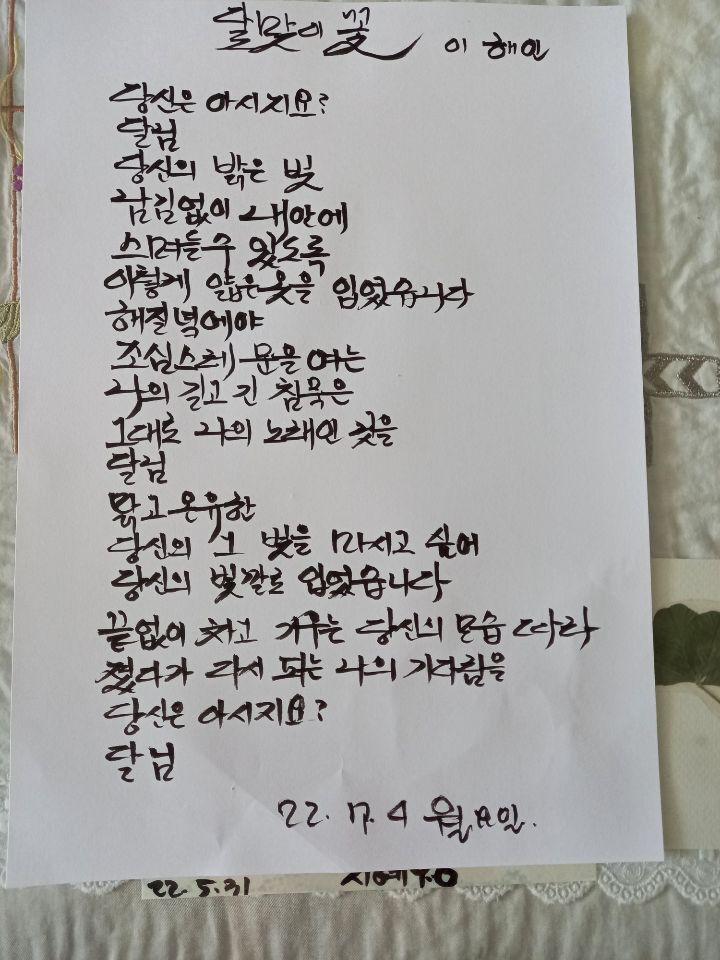 달맞이 꽃 이 해인
당신은 아시지요?
달님
당신의 밝은 빛
남김없이 내안에
스며들수 있도록
이렇게 얇은옷을 입었습니다
해질녘에야
조심스레 문을 여는
나의 길고 긴 침묵은
그대로 나의 노래인 것을
달님
맑고 온유한
당신의 그 빛을 마시고 싶어
당신의 빛깔로 입었습니다
끝없이 차고 기우는 당신의 모습 따라
졌다가 다시 피는 나의 기다림을
당신은 아시지요?
달님
22. 7. 4 월요일.
22. 5. 31